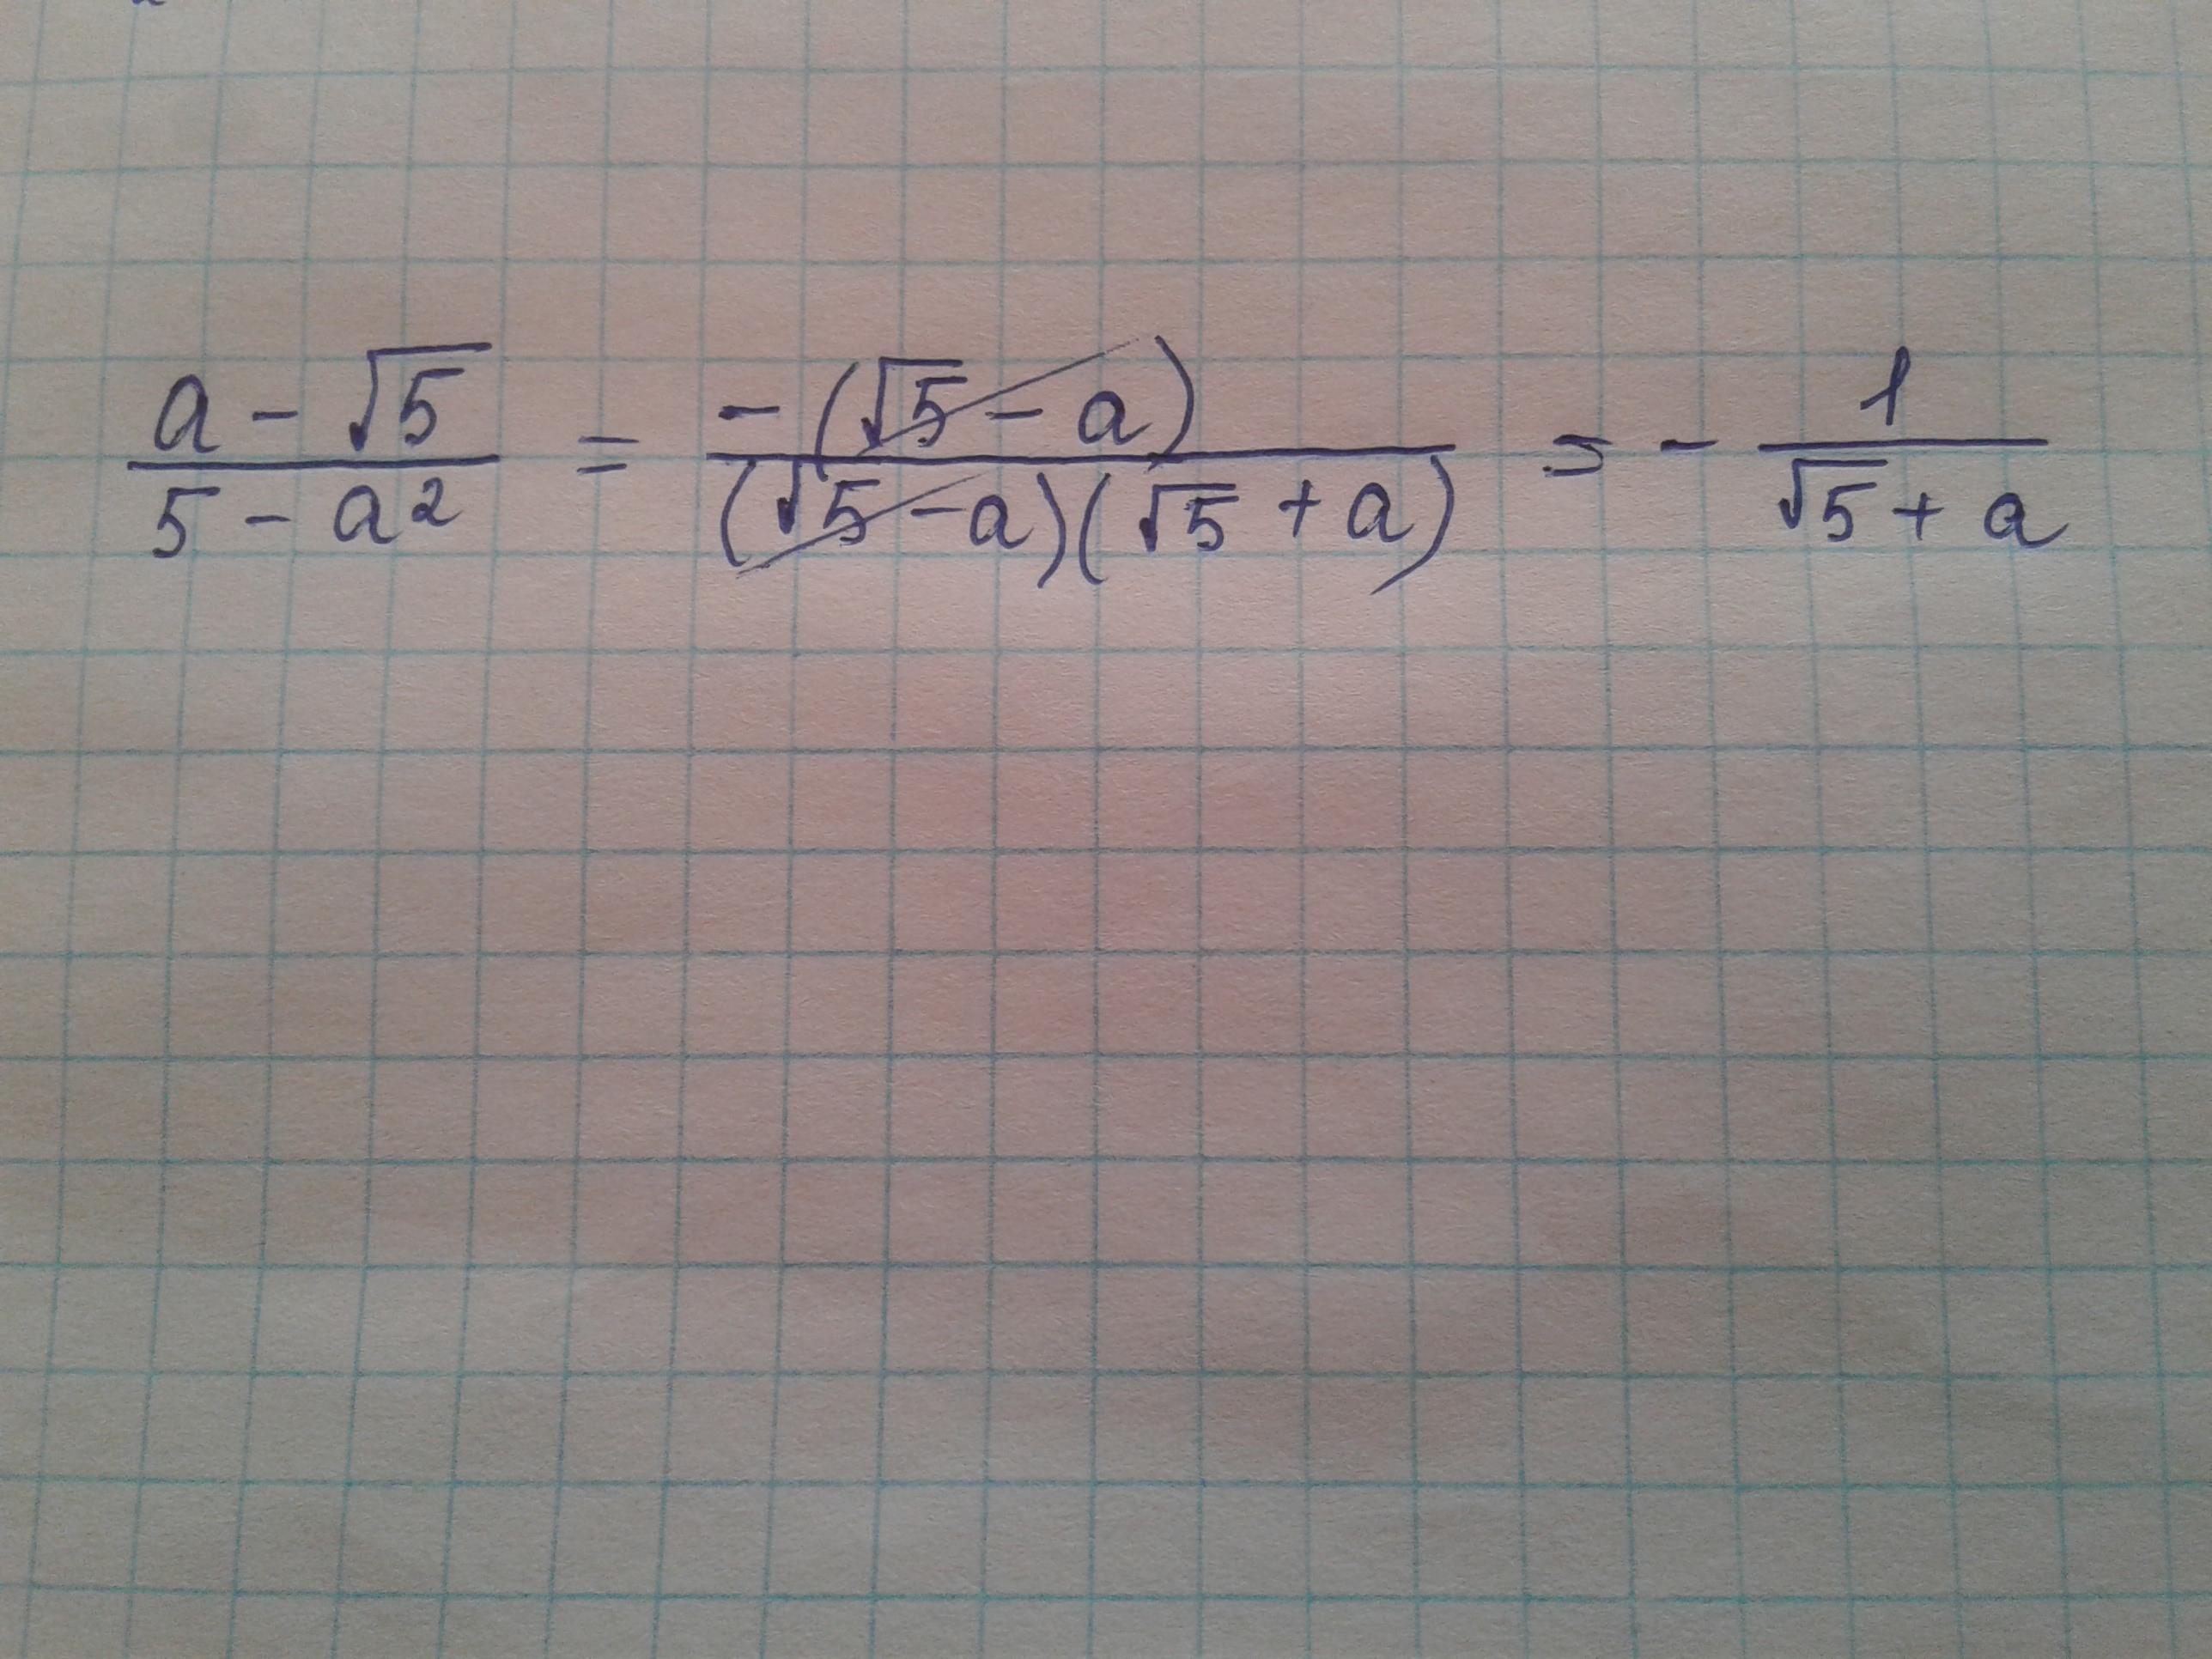 (a - √5)/(5 - a²) = (-(√5 - a))/((√5 - a)(√5 + a)) = - 1/(√5 + a)